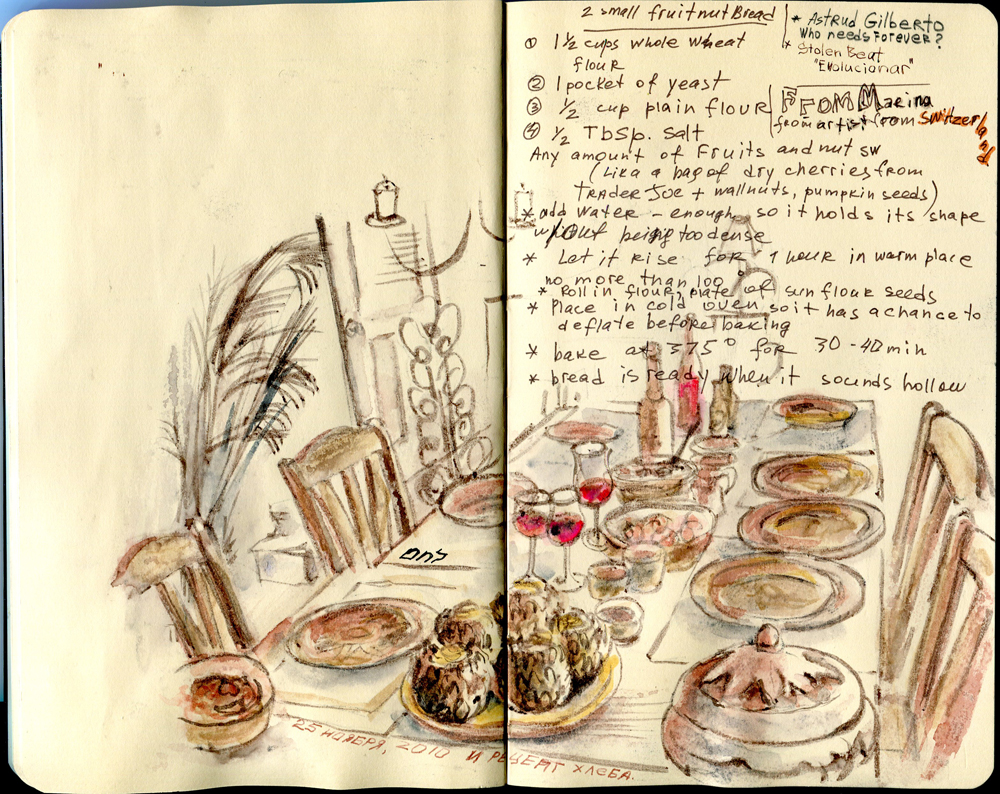 2 small fruitnut Bread
① 1 1/2 cups whole wheat
flour
② 1 pocket of yeast
③ 1/2 cup plain flour
④ 1/2 Tbsp. salt
Any amount of Fruits and nut sw
(Like a bag of dry cherries from
TRADER JOE + wallnuts, pumpkin seeds)
* add water - enough so it holds its shape
w/out being too dense
* Let it rise for 1 hour in warm place
no more than 100°
* Roll in flour, plate of sun flour seeds
* Place in cold oven so it has a chance to
deflate before baking
* bake at 375° for 30-40 min
* bread is ready when it sounds hollow
* Astrud Gilberto
Who needs Forever?
* Stolen Beat
"Evolucionar"
FROM Marina
from artist from Switzerland.
לחם
25 НОЯБРЯ, 2010 И РЕЦЕПТ ХЛЕБА.